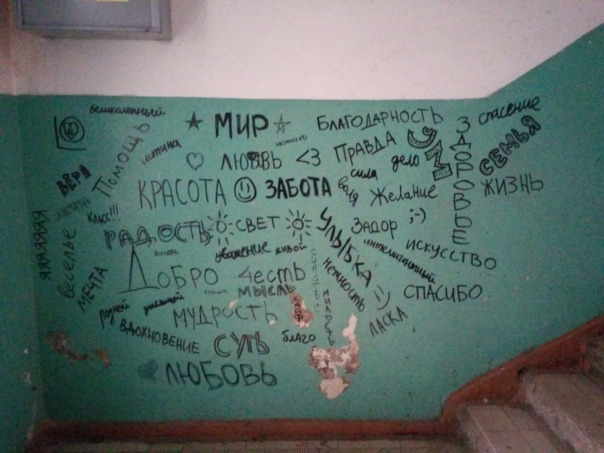 великолепный
★ МИР ☆
БЛАГОДАРНОСТЬ
спасение
Помощь
истина
ЛЮБОВЬ <3
ПРАВДА
дело
ЗДОРОВЬЕ
СЕМЬЯ
ВЕРА
сила
КРАСОТА ☺ ЗАБОТА
воля
Желание
ЖИЗНЬ
КЛАСС!!!
РАДОСТЬ
СВЕТ
УЛЫБКА
ЗАДОР ;-)
интеллигентный
ИСКУССТВО
ЯЯЯЯЯЯЯ
веселье
МЕЧТА
уважение
живой
Добро
Честь
нежность
СПАСИБО
МЫСЛЬ
родной
МУДРОСТЬ
МИЛОСТЬ
ЛАСКА
ВДОХНОВЕНИЕ
СУТЬ
благо
ЛЮБОВЬ